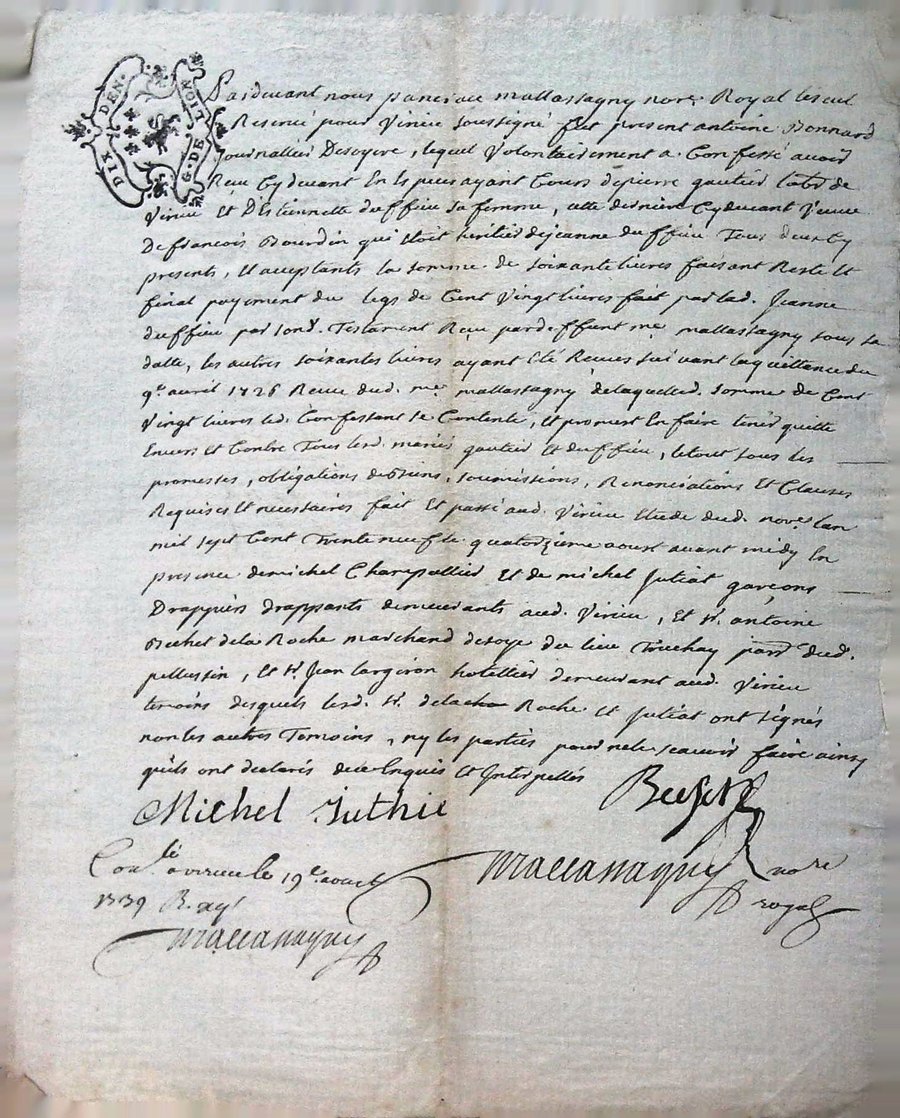 DIX DEN. G. DE LION
Pardevant nous pancrace mallassagny nore Royal
Reservé pour Virieu soussigné fut present antoine Bonnard
Journallier Desoyere, lequel volontairement a Confessé avoir
Receu Cydevant En Especes ayant Cours de pierre gautier labr de
Virieu Et D'Estiennette duffieu sa femme, cette derniere Cydevant veuve
De francois Bourdin qui Etoit heritier de jeanne duffieu Tous deux Cy
presents, Et acceptants la somme de soixante livres faisant Reste Et
final payement du legs de Cent Vingt livres fait par lad. Jeanne
duffieu par son Testament Receu par deffunt me mallassagny sous sa
datte, les autres soixantes livres ayant Eté Receues suivant la quittance du
9e avril 1726 Receue dud. me mallassagny de laquelle d. somme de Cent
Vingt livres led. Confessant se Contente, Et promet En faire tenir quitte
Envers Et Contre Tous lesd. mariés gautier Et duffieu, le tout sous les
promesses, obligations de biens, soumissions, Renonciations Et Clauses
Requises Et necessaires fait Et passé aud. Virieu Etude dud. nore lan
mil sept Cent Trente neuf le quatorzieme aoust avant midy En
presence de michel Charpallier Et de michel Jutiat garçons
Drappiers drappants demeurants aud. Virieu, Et sr. antoine
Bechet dela Roche marchand de soye du lieu Truchay parr. dud.
pellussin, Et sr. Jean largiron hotellier demeurant aud. Virieu
temoins desquels lesd. sr. dela Roche Et Jutiat ont signés
non les autres Temoins, ny les parties pour ne le sçavoir faire ainsy
quils ont declarés de ce Enquis Et Interpellés
Michel Juthie
Conlé a virieu le 19e aoust
1739 R.
mallassagny
mallassagny nore
royal